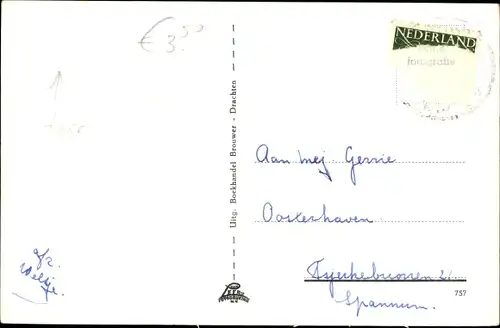 € 3.50
NEDERLAND
fotografie
Uitg. Boekhandel Brouwer - Drachten
Aan mej Gerrie
Oosterhaven
Tsjerkebuorren 21
Spannum.
afz.
Weltje.
757